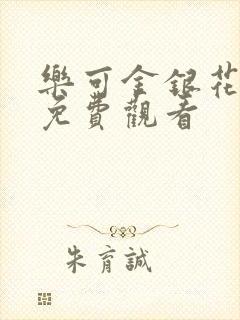 樂可金銀花
免費觀看
朱育誠